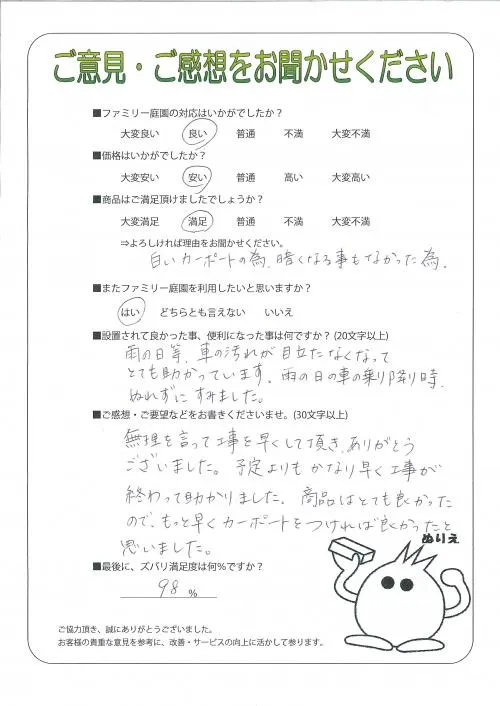 ご意見・ご感想をお聞かせください
■ファミリー庭園の対応はいかがでしたか？
大変良い 良い 普通 不満 大変不満
■価格はいかがでしたか？
大変安い 安い 普通 高い 大変高い
■商品はご満足頂けましたでしょうか？
大変満足 満足 普通 不満 大変不満
⇒よろしければ理由をお聞かせください。
白いカーポートの為、暗くなる事もなかった為。
■またファミリー庭園を利用したいと思いますか？
はい どちらとも言えない いいえ
■設置されて良かった事、便利になった事は何ですか？(20文字以上)
雨の日等、車の汚れが目立たなくなって
とても助かっています、雨の日の車の乗り降り時、
ぬれずにすみました。
■ご感想・ご要望などをお書きくださいませ。(30文字以上)
無理を言って工事を早くして頂き、ありがとう
ございました。予定よりもかなり早く工事が
終わって助かりました。商品はとても良かった
ので、もっと早くカーポートをつければ良かったと
思いました。
ぬりえ
■最後に、ズバリ満足度は何％ですか？
98 ％
ご協力頂き、誠にありがとうございました。
お客様の貴重な意見を参考に、改善・サービスの向上に活かして参ります。